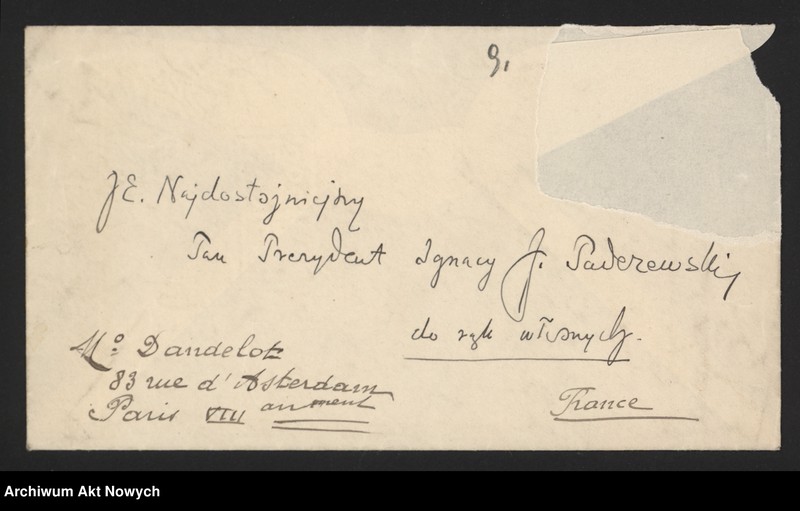 9.
JE. Najdostojniejszy
Pan Prezydent Ignacy J. Paderewski,
do rąk własnych.
Mo. Dandelot
83 rue d'Asterdam
Paris VIII
France
Archiwum Akt Nowych